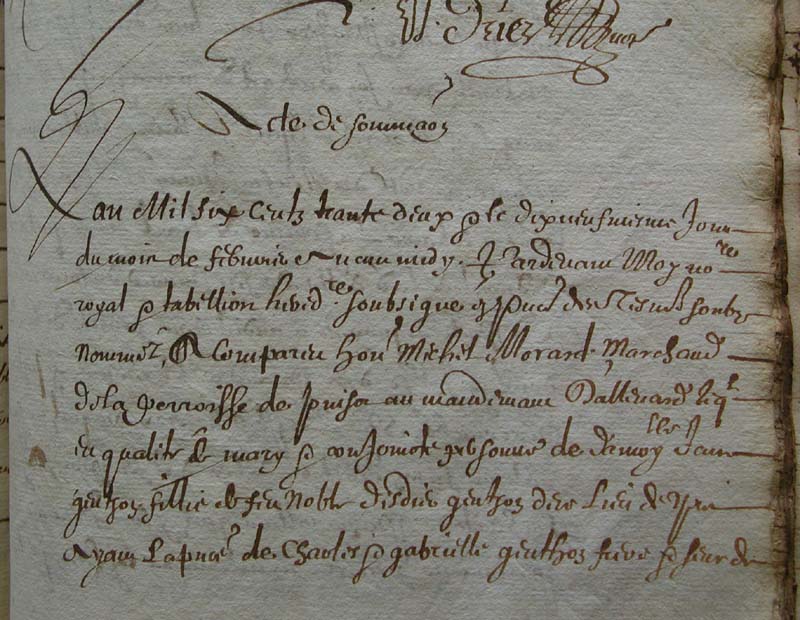 Acte de sommaõn
Lan Mil six centz trante deux & le dixneufviesme Jour
du mois de febvrier avan midy. Pardevam Moy no.re
royal & tabellion heredre soubsigne & pnce des Tesm soubz
nommez, A Comparu hon Michel Morard Marchand
de la perroisse de au mandemant Dallevard leql
en qualite de mary & conJoincte personne de damoylle Jane
genthon fillie de feu Noble disdier genthon de Lieu de
Ayam La pnce de Charles & gabrielle genthon frere & seur de